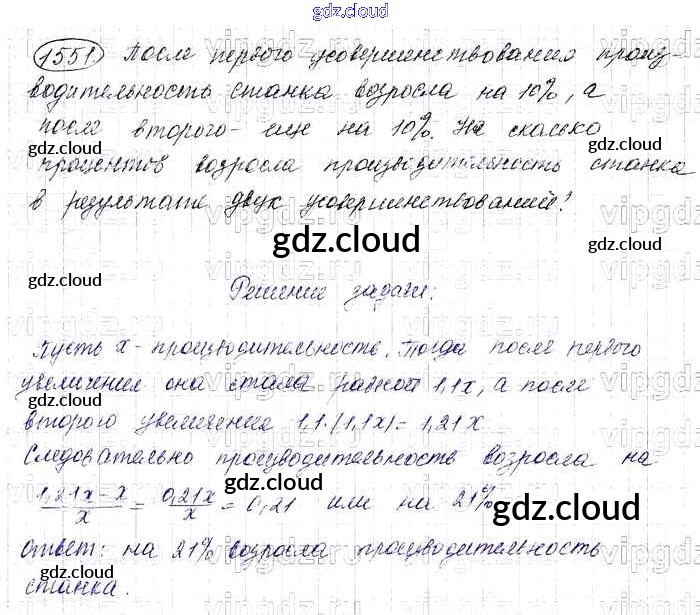 gdz.cloud
1551 После первого усовершенствования произ-
водительность станка возросла на 10%, а
после второго - еще на 10%. На сколько
gdz.cloud gdz.cloud
процентов возросла производительность станка
в результате двух усовершенствований?
gdz.cloud
gdz.cloud gdz.cloud
Решение задачи:
Пусть x - производительность. Тогда после первого
увеличения она стала равной 1,1x, а после
gdz.cloud gdz.cloud
второго увеличения 1,1·(1,1x) = 1,21x
Следовательно производительность возросла на
(1,21x-x)/x = 0,21x/x = 0,21 или на 21%
gdz.cloud
gdz.cloud
Ответ: на 21% возросла производительность
gdz.cloud
станка.